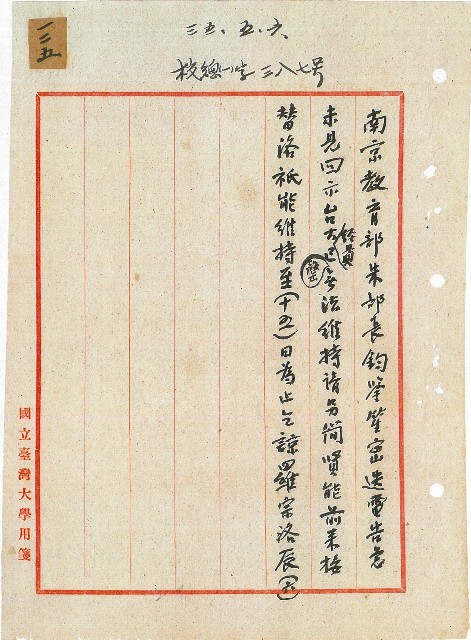 一三五
三五.五.六
校總(一)字三八七号
南京教育部朱部長鈞鑒密迭電告急
未見回示台大經費已無法維持請另簡賢能前來接
替洛祇能維持至(十五)日為止乞諒羅宗洛辰(六)
國立臺灣大學用箋